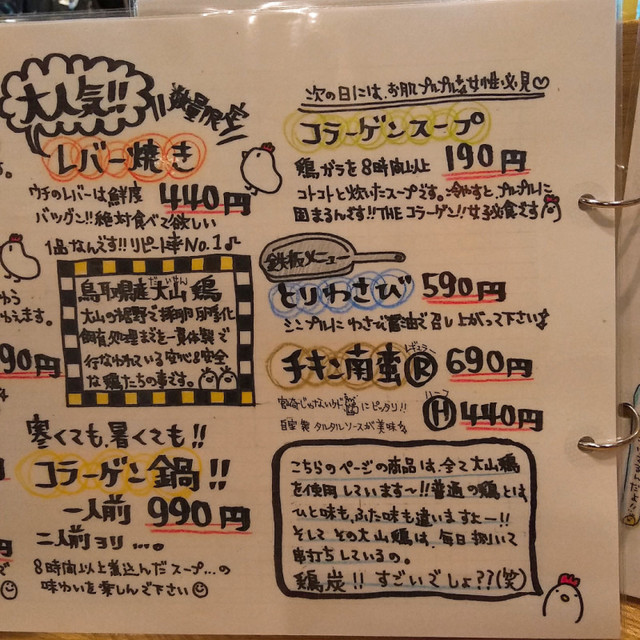 大人気!!
数量限定
レバー焼き
ウチのレバーは鮮度
440円
バツグン!!絶対食べて欲しい
1品なんです!!リピート率No.1♪
鳥取県産大山鶏
だいせん
大山の裾野で採卵孵化
飼育処理までを一貫体制で
行なわれている安心&安全
な鶏たちの事です。
寒くても、暑くても!!
コラーゲン鍋!!
一人前 990円
二人前ヨリ…。
8時間以上煮込んだスープ…の
味わいを楽しんで下さい
次の日には、お肌プルプルな女性必見♡
コラーゲンスープ
鶏ガラを8時間以上 190円
コトコトと炊いたスープです。冷やすと、プルプルに
固まるんです!!THEコラーゲン!!女子必食です
鉄板メニュー
とりわさび 590円
シンプルにわさび醤油で召し上がって下さいませ
レギュラー
チキン南蛮 Ⓡ 690円
にピッタリ!!
ハーフ
Ⓗ 440円
自家製タルタルソースが美味
こちらのページの商品は、全て大山鶏
を使用しています〜!!普通の鶏とは、
ひと味も、ふた味も違いますよー!!
そしてその大山鶏は、毎日捌いて
串打ちしているの。
鶏炭!!すごいでしょ??(笑)
す。
わら
わえます。
90円
円